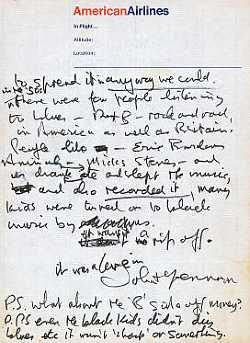 AmericanAirlines
In Flight...
Altitude:
Location:
to spread it in any way we could.
in the 50s
there were few people listening
to blues - R+B - rock and roll,
in America as well as Britain.
People like - Eric Burdon
Animals - Micks Stones - and
us drank ate and slept the music,
and also recorded it, many
kids were turned on to black
music by
it wasn't a rip off.
it was a love in
John Lennon
P.S. what about the 'B' side of money?
P.P.S even the black kids didn't dig
blues etc it wasn't 'sharp' or something.